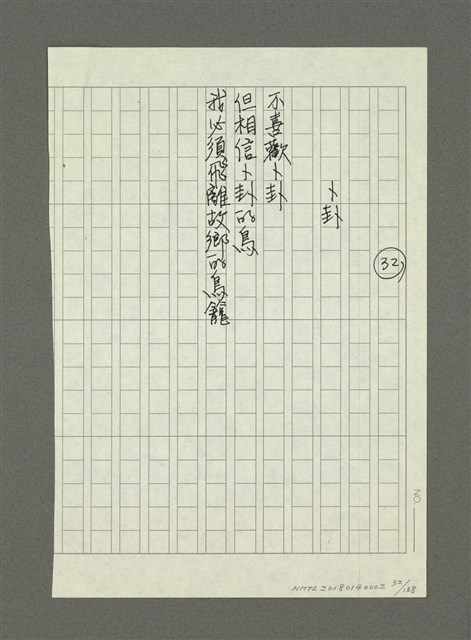 32
卜卦
不喜歡卜卦
但相信卜卦的鳥
我必須飛離故鄉的鳥籠
NO.
NMTL20180140002 32/188